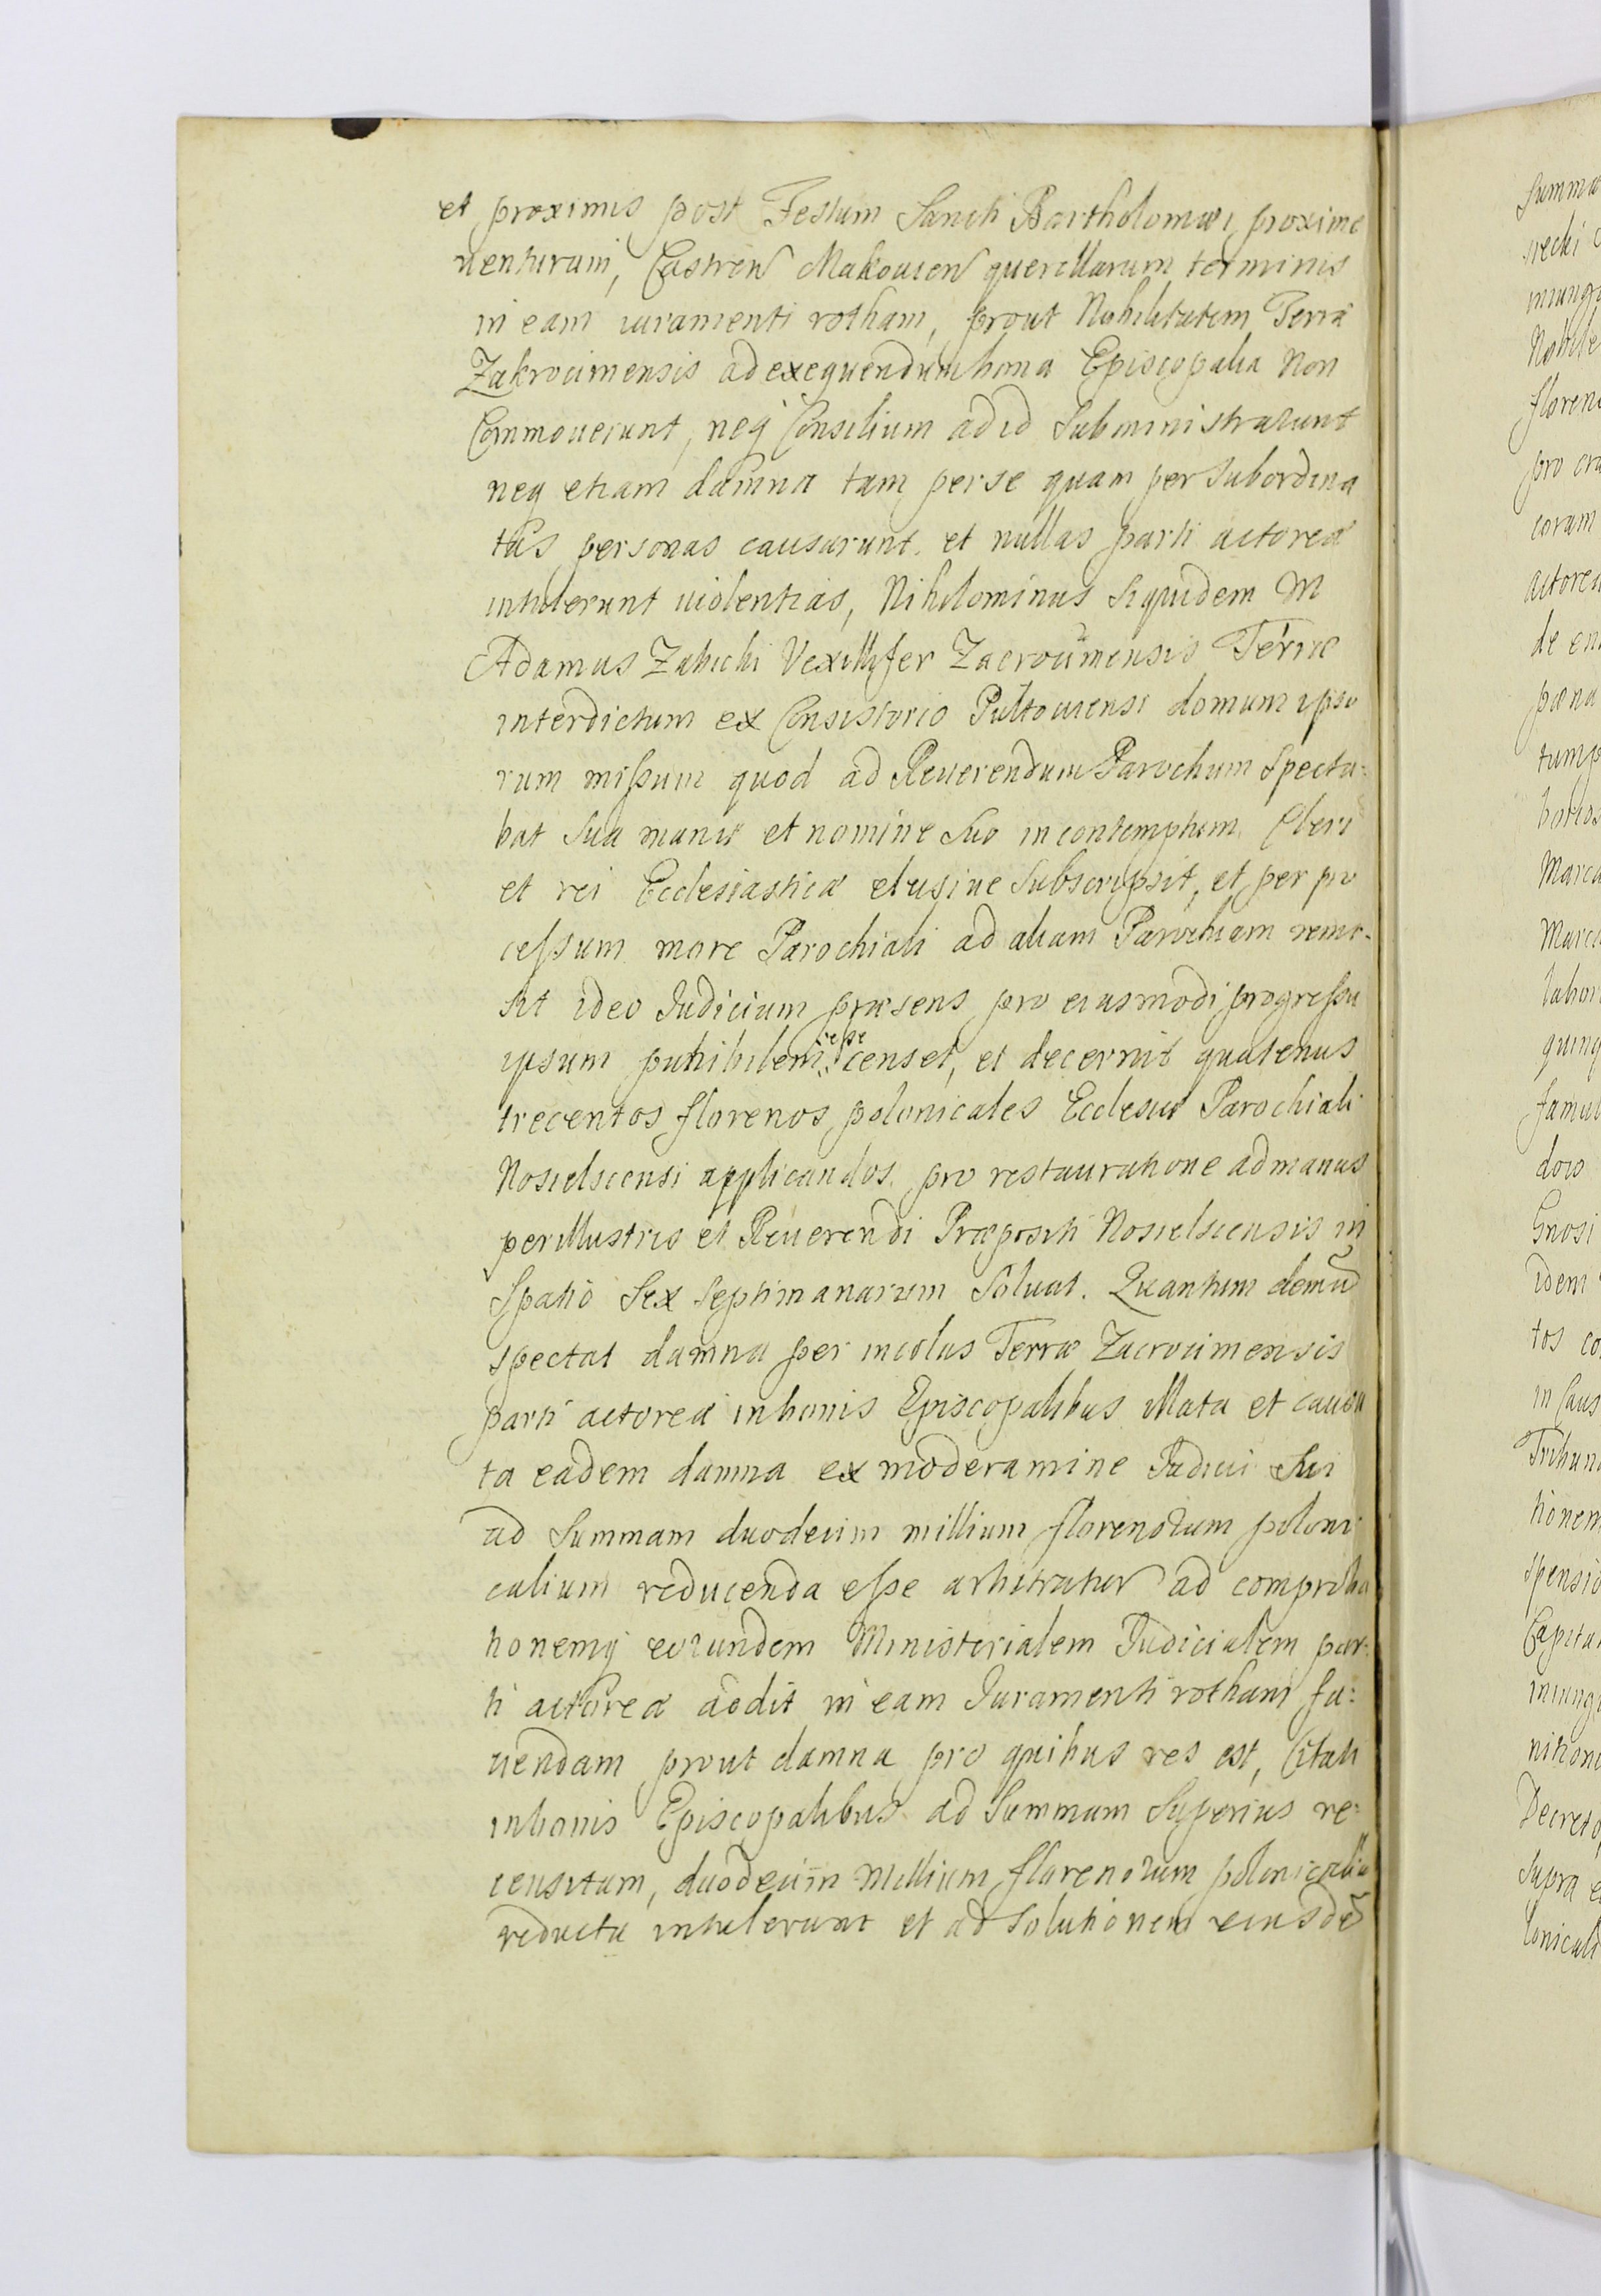 et proximis post Festum Sancti Bartholomæi proxime
uenturum, Castren Makouien querellarum terminis
in eam iuramenti rotham, prout Nobilitatem Terræ
Zakrocimensis ad exequendum bona Episcopalia Non
Commouerunt, neq Consilium ad id Subministrarunt
neq etiam damna tam per se quam per Subordina
tas personas causarunt. et nullas parti actoreæ
intulerunt uiolentias, Nihilominus Siquidem M
Adamus Zabicki Vexillifer Zacrocimensis Terræ
interdictum ex Consistorio Pultouiensi domum ipso
rum missum quod ad Reuerendum Parochum Specta=
bat Sua manu et nomine Suo in contemptum Cleri
et rei Ecclesiasticæ elusiue Subscripsit, et per pro
cessum more Parochiali ad aliam Parochiam remi-
sit ideo Iudicium præsens pro eiusmodi progressu
ipsum punibilem esse censet, et decernit quatenus
trecentos florenos polonicales Ecclesiæ Parochiali
Nosielscensi applicandos. pro restauratione ad manus
perillustris et Reuerendi Præpositi Nosielscensis in
Spatio Sex Septimanarum Soluat. Quantum demũ
spectat damna per incolas Terræ Zacrocimensis
parti actoreæ in bonis Episcopalibus illata et causa
ta eadem damna ex moderamine Iudicii Sui
ad Summam duodecim millium florenorum poloni
calium reducenda esse arbitratur ad comproba
tionemq eorundem Ministerialem Iudicialem par=
ti actoreæ addit in eam Iuramenti rotham fa=
uendam prout damna pro quibus res est, Citati
in bonis Episcopalibus ad Summam Superius re=
censitam, duodecim Millium florenorum polonicaliũ
reducta intulerunt et ad Solutionem eiusdẽ